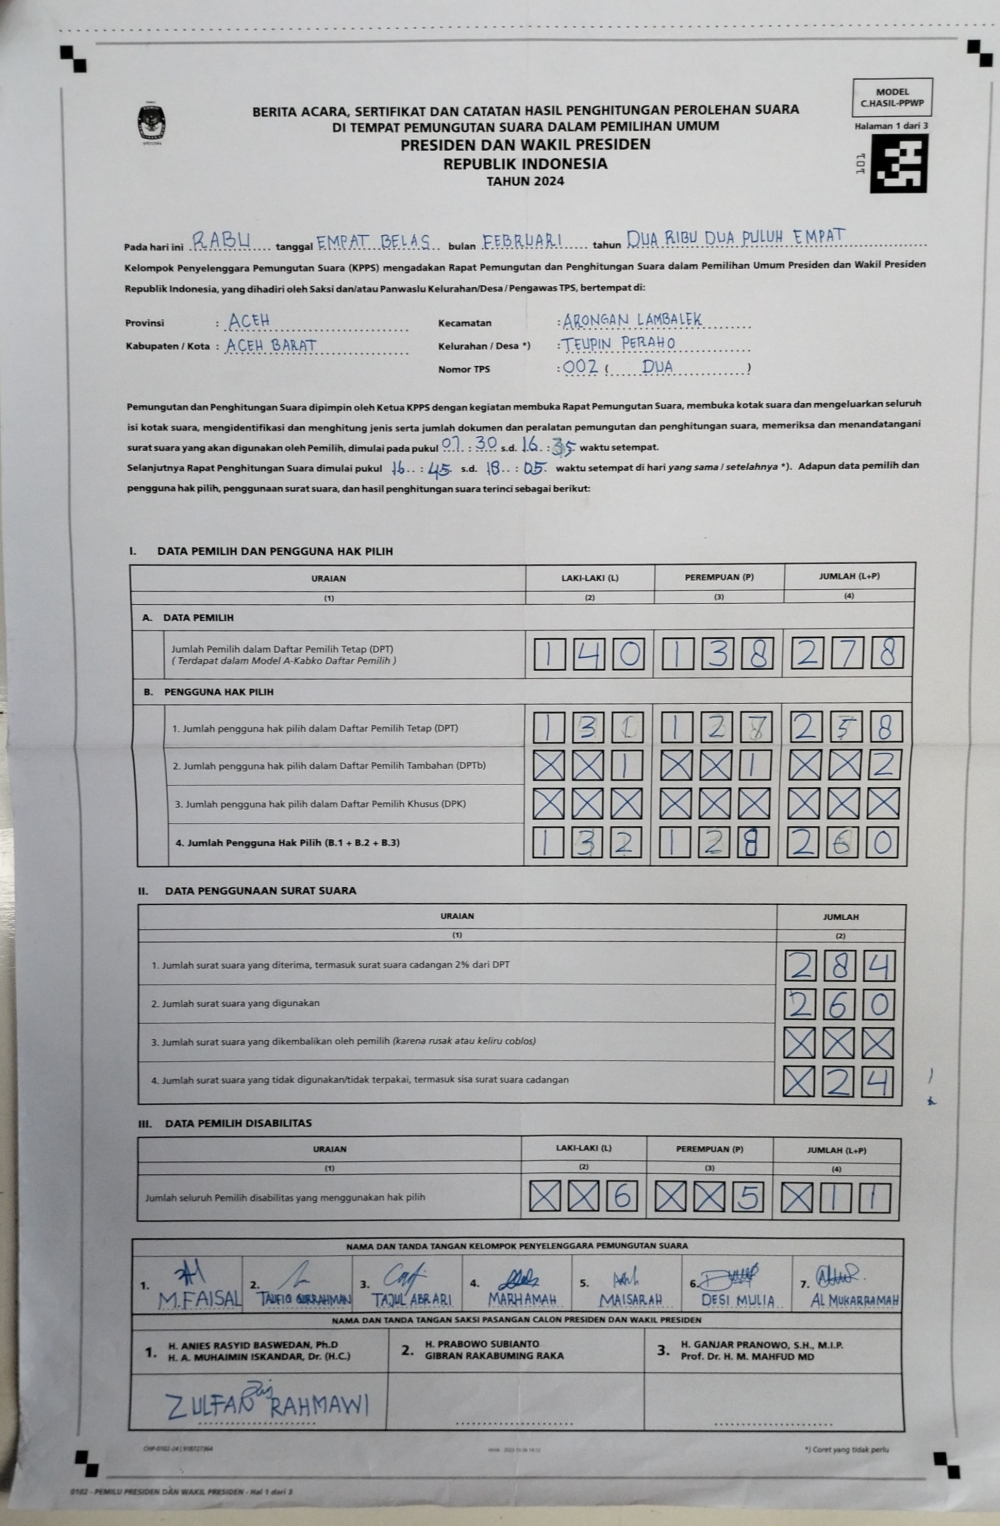 MODEL
C.HASIL-PPWP
Halaman 1 dari 3
101
BERITA ACARA, SERTIFIKAT DAN CATATAN HASIL PENGHITUNGAN PEROLEHAN SUARA
DI TEMPAT PEMUNGUTAN SUARA DALAM PEMILIHAN UMUM
PRESIDEN DAN WAKIL PRESIDEN
REPUBLIK INDONESIA
TAHUN 2024
Pada hari ini RABU tanggal EMPAT BELAS bulan FEBRUARI tahun DUA RIBU DUA PULUH EMPAT
Kelompok Penyelenggara Pemungutan Suara (KPPS) mengadakan Rapat Pemungutan dan Penghitungan Suara dalam Pemilihan Umum Presiden dan Wakil Presiden
Republik Indonesia, yang dihadiri oleh Saksi dan/atau Panwaslu Kelurahan/Desa / Pengawas TPS, bertempat di:
Provinsi : ACEH Kecamatan : ARONGAN LAMBALEK
Kabupaten / Kota : ACEH BARAT Kelurahan / Desa *) : TEUPIN PERAHO
Nomor TPS : 002 ( DUA )
Pemungutan dan Penghitungan Suara dipimpin oleh Ketua KPPS dengan kegiatan membuka Rapat Pemungutan Suara, membuka kotak suara dan mengeluarkan seluruh
isi kotak suara, mengidentifikasi dan menghitung jenis serta jumlah dokumen dan peralatan pemungutan dan penghitungan suara, memeriksa dan menandatangani
surat suara yang akan digunakan oleh Pemilih, dimulai pada pukul 07 : 30 s.d. 16 : 35 waktu setempat.
Selanjutnya Rapat Penghitungan Suara dimulai pukul 16 : 45 s.d. 18 : 05 waktu setempat di hari yang sama / setelahnya *). Adapun data pemilih dan
pengguna hak pilih, penggunaan surat suara, dan hasil penghitungan suara terinci sebagai berikut:
I. DATA PEMILIH DAN PENGGUNA HAK PILIH
URAIAN LAKI-LAKI (L) PEREMPUAN (P) JUMLAH (L+P)
(1) (2) (3) (4)
A. DATA PEMILIH
Jumlah Pemilih dalam Daftar Pemilih Tetap (DPT) 1 4 0 1 3 8 2 7 8
( Terdapat dalam Model A-Kabko Daftar Pemilih )
B. PENGGUNA HAK PILIH
1. Jumlah pengguna hak pilih dalam Daftar Pemilih Tetap (DPT) 1 3 1 1 2 7 2 5 8
2. Jumlah pengguna hak pilih dalam Daftar Pemilih Tambahan (DPTb) X X 1 X X 1 X X 2
3. Jumlah pengguna hak pilih dalam Daftar Pemilih Khusus (DPK) X X X X X X X X X
4. Jumlah Pengguna Hak Pilih (B.1 + B.2 + B.3) 1 3 2 1 2 8 2 6 0
II. DATA PENGGUNAAN SURAT SUARA
URAIAN JUMLAH
(1) (2)
1. Jumlah surat suara yang diterima, termasuk surat suara cadangan 2% dari DPT 2 8 4
2. Jumlah surat suara yang digunakan 2 6 0
3. Jumlah surat suara yang dikembalikan oleh pemilih (karena rusak atau keliru coblos) X X X
4. Jumlah surat suara yang tidak digunakan/tidak terpakai, termasuk sisa surat suara cadangan X 2 4
III. DATA PEMILIH DISABILITAS
URAIAN LAKI-LAKI (L) PEREMPUAN (P) JUMLAH (L+P)
(1) (2) (3) (4)
Jumlah seluruh Pemilih disabilitas yang menggunakan hak pilih X X 6 X X 5 X 1 1
NAMA DAN TANDA TANGAN KELOMPOK PENYELENGGARA PEMUNGUTAN SUARA
1. 2. 3. 4. 5. 6. 7.
M.FAISAL TAUFIQ QURRAHMAN TAJUL ABRARI MARHAMAH MAISARAH DESI MULIA AL MUKARRAMAH
NAMA DAN TANDA TANGAN SAKSI PASANGAN CALON PRESIDEN DAN WAKIL PRESIDEN
1. H. ANIES RASYID BASWEDAN, Ph.D
H. A. MUHAIMIN ISKANDAR, Dr. (H.C.)
2. H. PRABOWO SUBIANTO
GIBRAN RAKABUMING RAKA
3. H. GANJAR PRANOWO, S.H., M.I.P.
Prof. Dr. H. M. MAHFUD MD
ZULFAN RAHMAWI
*) Coret yang tidak perlu
0102 - PEMILU PRESIDEN DAN WAKIL PRESIDEN - Hal 1 dari 3